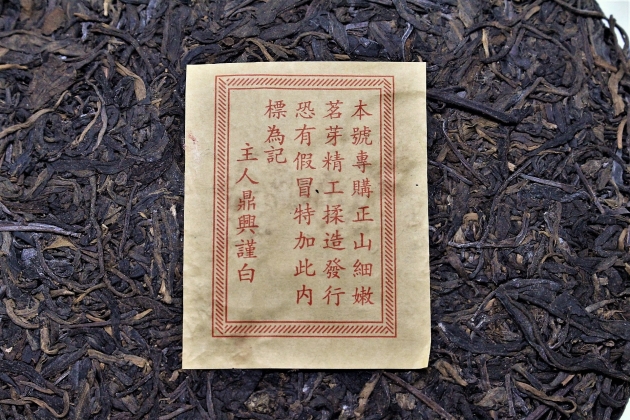 本號專購正山細嫩
茗芽精工揉造發行
恐有假冒特加此内
標為記
主人鼎興謹白